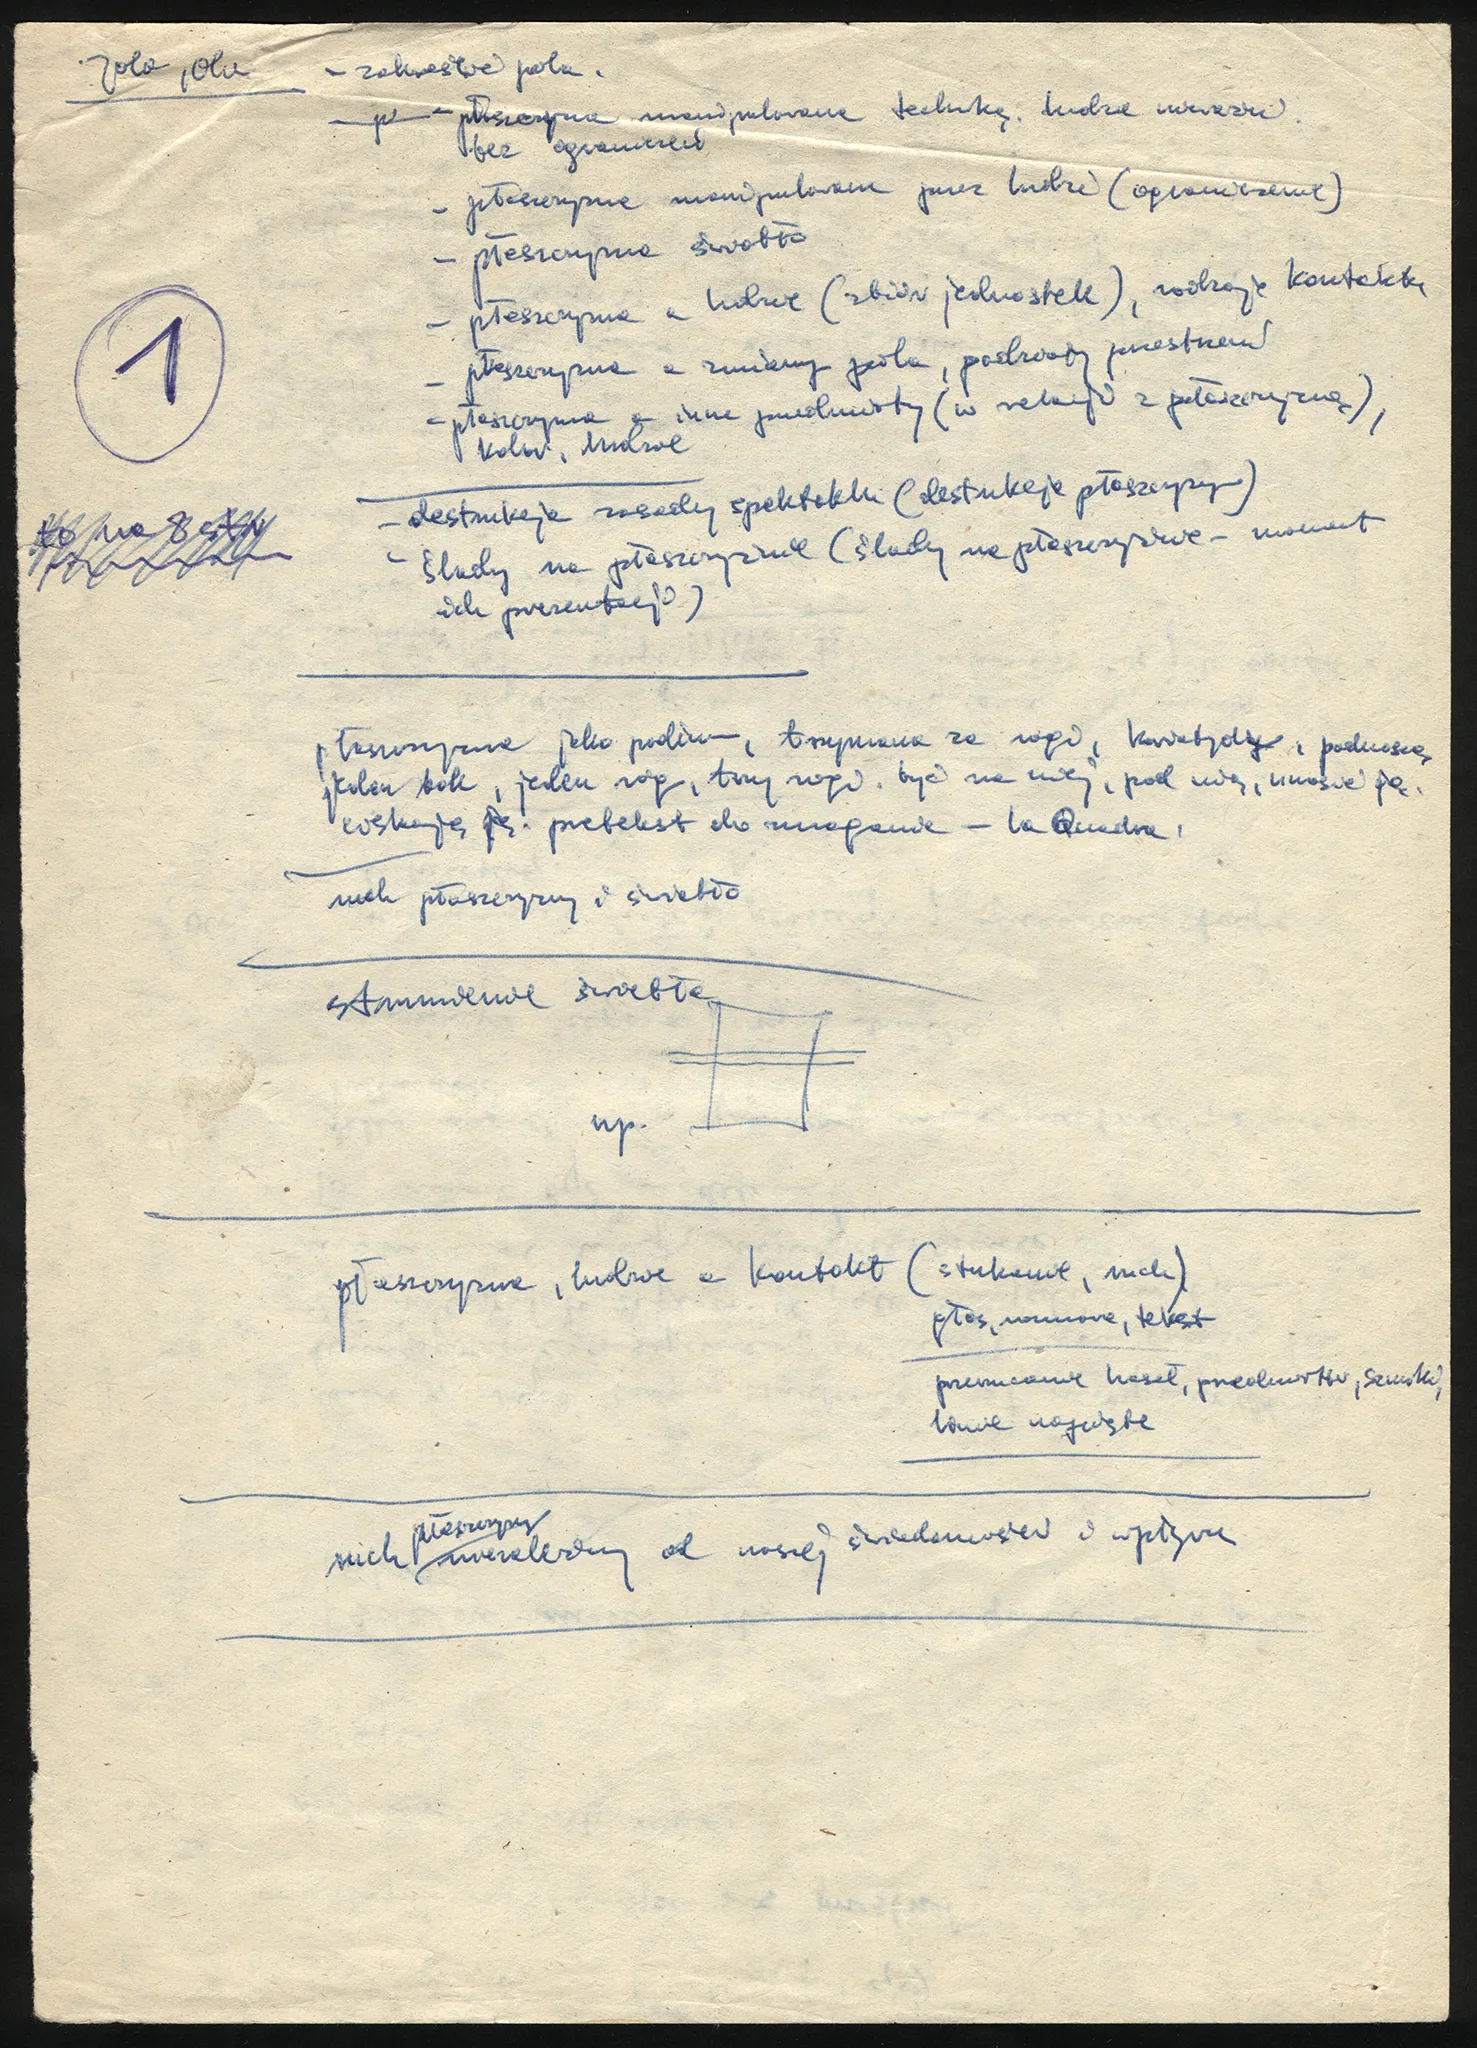 Jola, Ola
- zakreślić pola.
- płaszczyzna manipulowana techniką. ludzie nieważni.
bez ograniczeń
- płaszczyzna manipulowana przez ludzi (ograniczenie)
- płaszczyzna światło
- płaszczyzna a ludzie (zbiór jednostek), rodzaje kontaktu
- płaszczyzna a zmiany pola, podziały przestrzeni
- płaszczyzna a inne przedmioty (w relacji z płaszczyzną),
kolor, ludzie
1
to na 8 str
- destrukcja zasady spektaklu (destrukcja płaszczyzny)
- ślady na płaszczyźnie (ślady na płaszczyźnie - moment
ich prezentacji)
płaszczyzna jako podium, trzymana za rogi, podnoszą
jeden bok, jeden róg, trzy rogi. być na niej, pod nią, unosić ją.
pretekst do zmagania - la Quadra.
ruch płaszczyzny i światło
strumienie światła
np.
płaszczyzna, ludzie a kontakt (stukanie, ruch)
głos, rozmowa, tekst
przerzucanie haseł, przedmiotów,
linie napięte
ruch płaszczyzny niezależny od naszej świadomości i wpływu